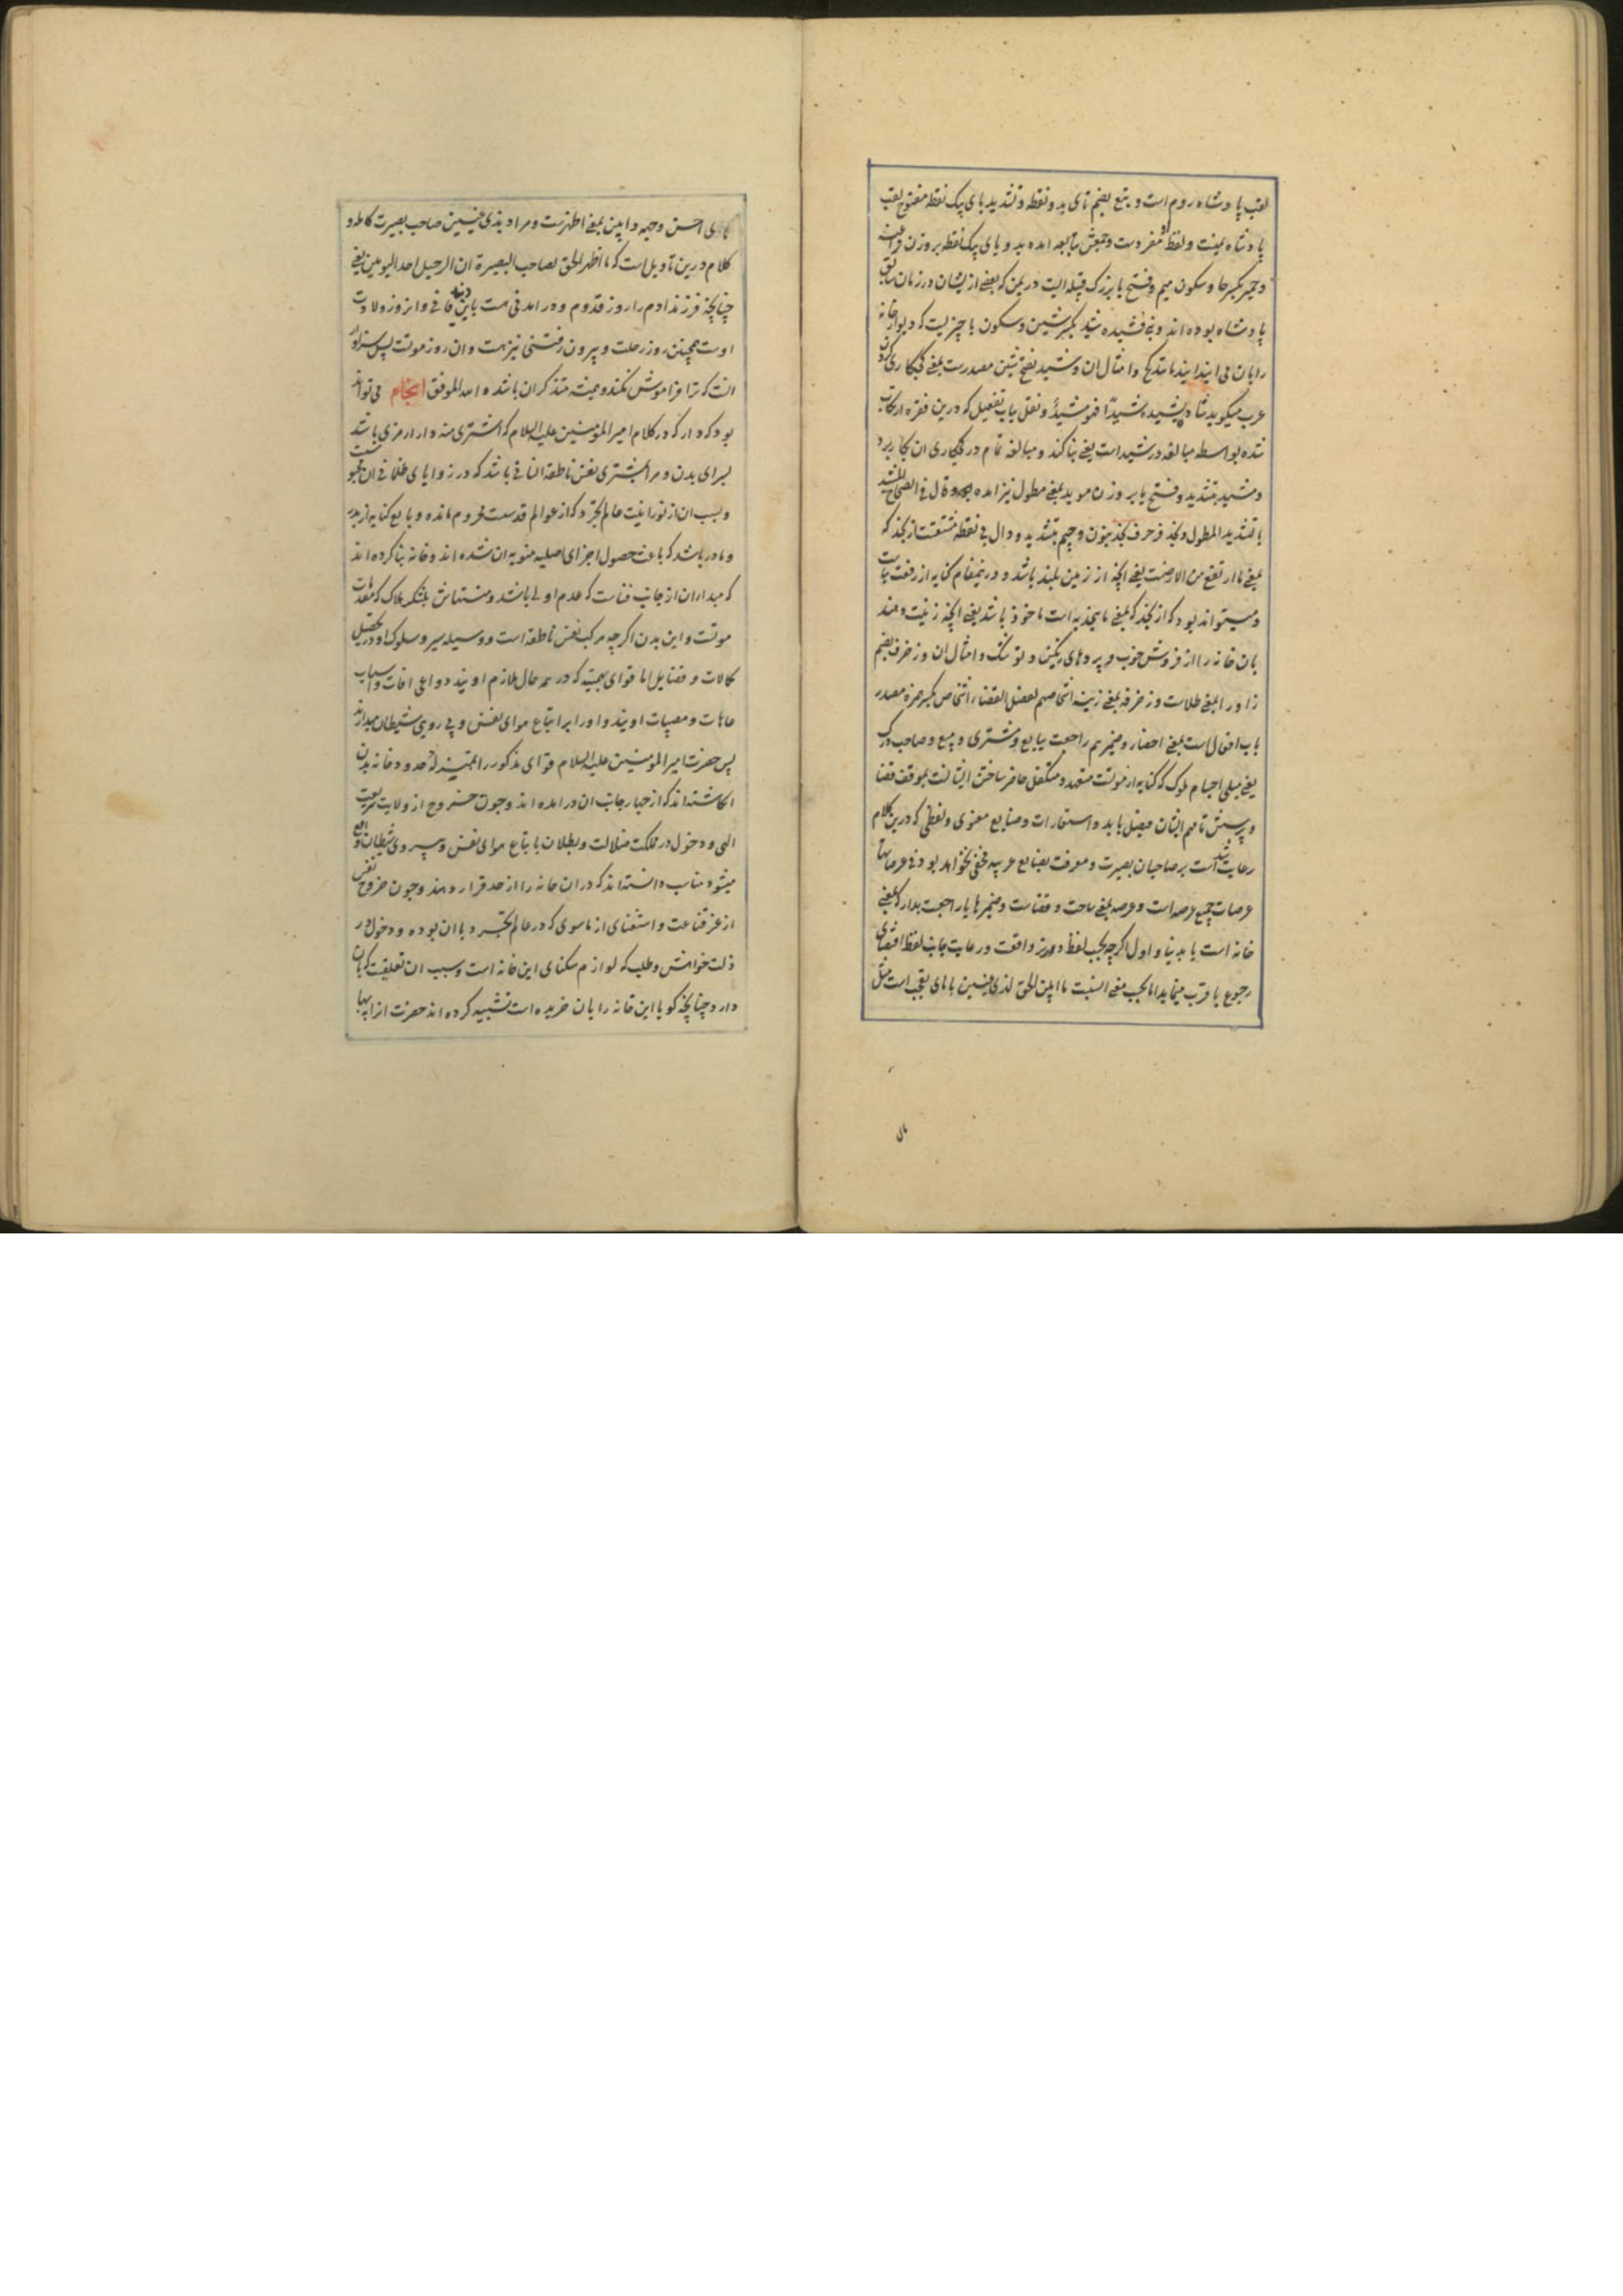 لقب پادشاه روم است و تبع بضم تای بدو نقطه و تشدید بای یک نقطه مفتوح لقب
پادشاه یمنست و لفظ او مفردست و جمعش تبابعه امده بدو بای یک نقطه بر وزن فراعنه
و حمیر بکسر حا و سکون میم و فتح یا بزرگ قبیله ایست در یمن که بعضی از ایشان در زمان سابق
پادشاه بوده اند و بنی فشیده شید بکسر شین و سکون یا چیزیست که دیوار خانه
را بان می اندایند مانند کج و امثال ان و شید بفتح شین مصدرست بمعنی کجکاری کردن
عرب میکوید شاد یشید شیدا فهو مشید و نقل بباب تفعیل که درین فقره ارتکاب
شده بواسطه مبالغه در شید است یعنی بنا کند و مبالغه تمام در کجکاری ان بکار برد
و مشید بتشدید و فتح یا بر وزن موید بمعنی مطول نیز امده و قال فی الصحاح المشید
بالتشدید المطول و نجد و زخرف نجد بنون و جیم بتشدید و دال بی نقطه مشتقست از نجد که
بمعنی ما ارتفع من الارضست یعنی انچه از زمین بلند باشد و درینمقام کنایه از رفعت بناست
و میتواند بود که از نجد که بمعنی ما ینجد به است ماخوذ باشد یعنی انچه زینت دهند
بان خانه را از فروش خوب و پردهای رنکین و توشک و امثال ان و زخرف بضم
زا و را بمعنی طلاست و زخرفه بمعنی زینه اشخاصهم لفصل القضاء اشخاص بکسر همزه مصدر
باب افعال است بمعنی احضار و ضمیر هم راجعست ببایع و مشتری و مبیع و صاحب درک
یعنی مبلی اجسام ملوک که کنایه از موتست متعهد و متکفل حاضر ساختن ایشانست بموقف قضا
و پرسش تا مهم ایشان فیصل یابد و استعارات و صنایع معنوی و لفظی که درین کلام
رعایت شده است بر صاحبان بصیرت و معرفت بصنایع عربیه مخفی نخواهد بود و فی عرصاتها
عرصات جمع عرصه است و عرصه بمعنی ساحت و فضاست و ضمیر ها یا راجعست بدار که بمعنی
خانه است یا بدنیا و اول اگرچه بحسب لفظ دورتر واقعست و رعایت جانب لفظ اقتضای
رجوع باقرب مینماید اما بحسب معنی انسبت ما ابین الحق لذی عینین با مای تعجب است مثل
مای احسن وجهه و ابین بمعنی اظهرست و مراد بذی عینین صاحب بصیرت کامله و
کلام درین تاویل است که ما اظهر الحق لصاحب البصیرة ان الرحیل احد الیومین یعنی
چنانچه فرزند ادم را روز قدوم و درامدنی هست باین دنیای فانی و ان روز ولادت
اوست همچنین روز رحلت و بیرون رفتنی نیز هست و ان روز موتست پس سزاوار
انست که ترا فراموش نکند و همیشه متذکر ان باشد و الله الموفق انجام می تواند
بود که دار که در کلام امیر المؤمنین علیه السلام که اشتری منه دارا رمزی باشد
برای بدن و مراد بمشتری نفس ناطقه انسانی باشد که در زوایای ظلمانی ان محبوست
و بسبب ان از نورانیت عالم تجرد که از عوالم قدسست محروم مانده و بایع کنایه از پدر
و مادر باشد که باعث حصول اجزای اصلیه منویه ان شده اند و خانه بنا کرده اند
که مبدا ان از جانب فناست که عدم اولی باشد و منتهاش بلشکر هلاک که مقدمات
موتست و این بدن اگرچه مرکب نفس ناطقه است و وسیله سیر و سلوک او در تحصیل
کمالات و فضایل اما قوای بهیمیه که در همه حال ملازم اویند دواعی افات و اسباب
عاهات و مصیبات اویند و او را بر اتباع هوای نفس و پی روی شیطان میدارند
پس حضرت امیر المؤمنین علیه السلام قوای مذکور را بمنزله حدود خانه بدن
انکاشته اند که از چهار جانب ان درامده اند و چون خروج از ولایت شریعت
الهی و دخول در مملکت ضلالت و بطلان باتباع هوای نفس و پیروی شیطان واقع
میشود مناسب دانسته اند که در ان خانه را از حد قرار دهند و چون خروج نفس
از عز قناعت و استغنای از ماسوی که در عالم تجرد با ان بوده و دخول در
ذلت خواهش و طلب که لوازم سکنای این خانه است و سبب ان تعلقیست که بان
دارد چنانچه کویا این خانه را بان خریده است تشبیه کرده اند حضرت انرا ببها